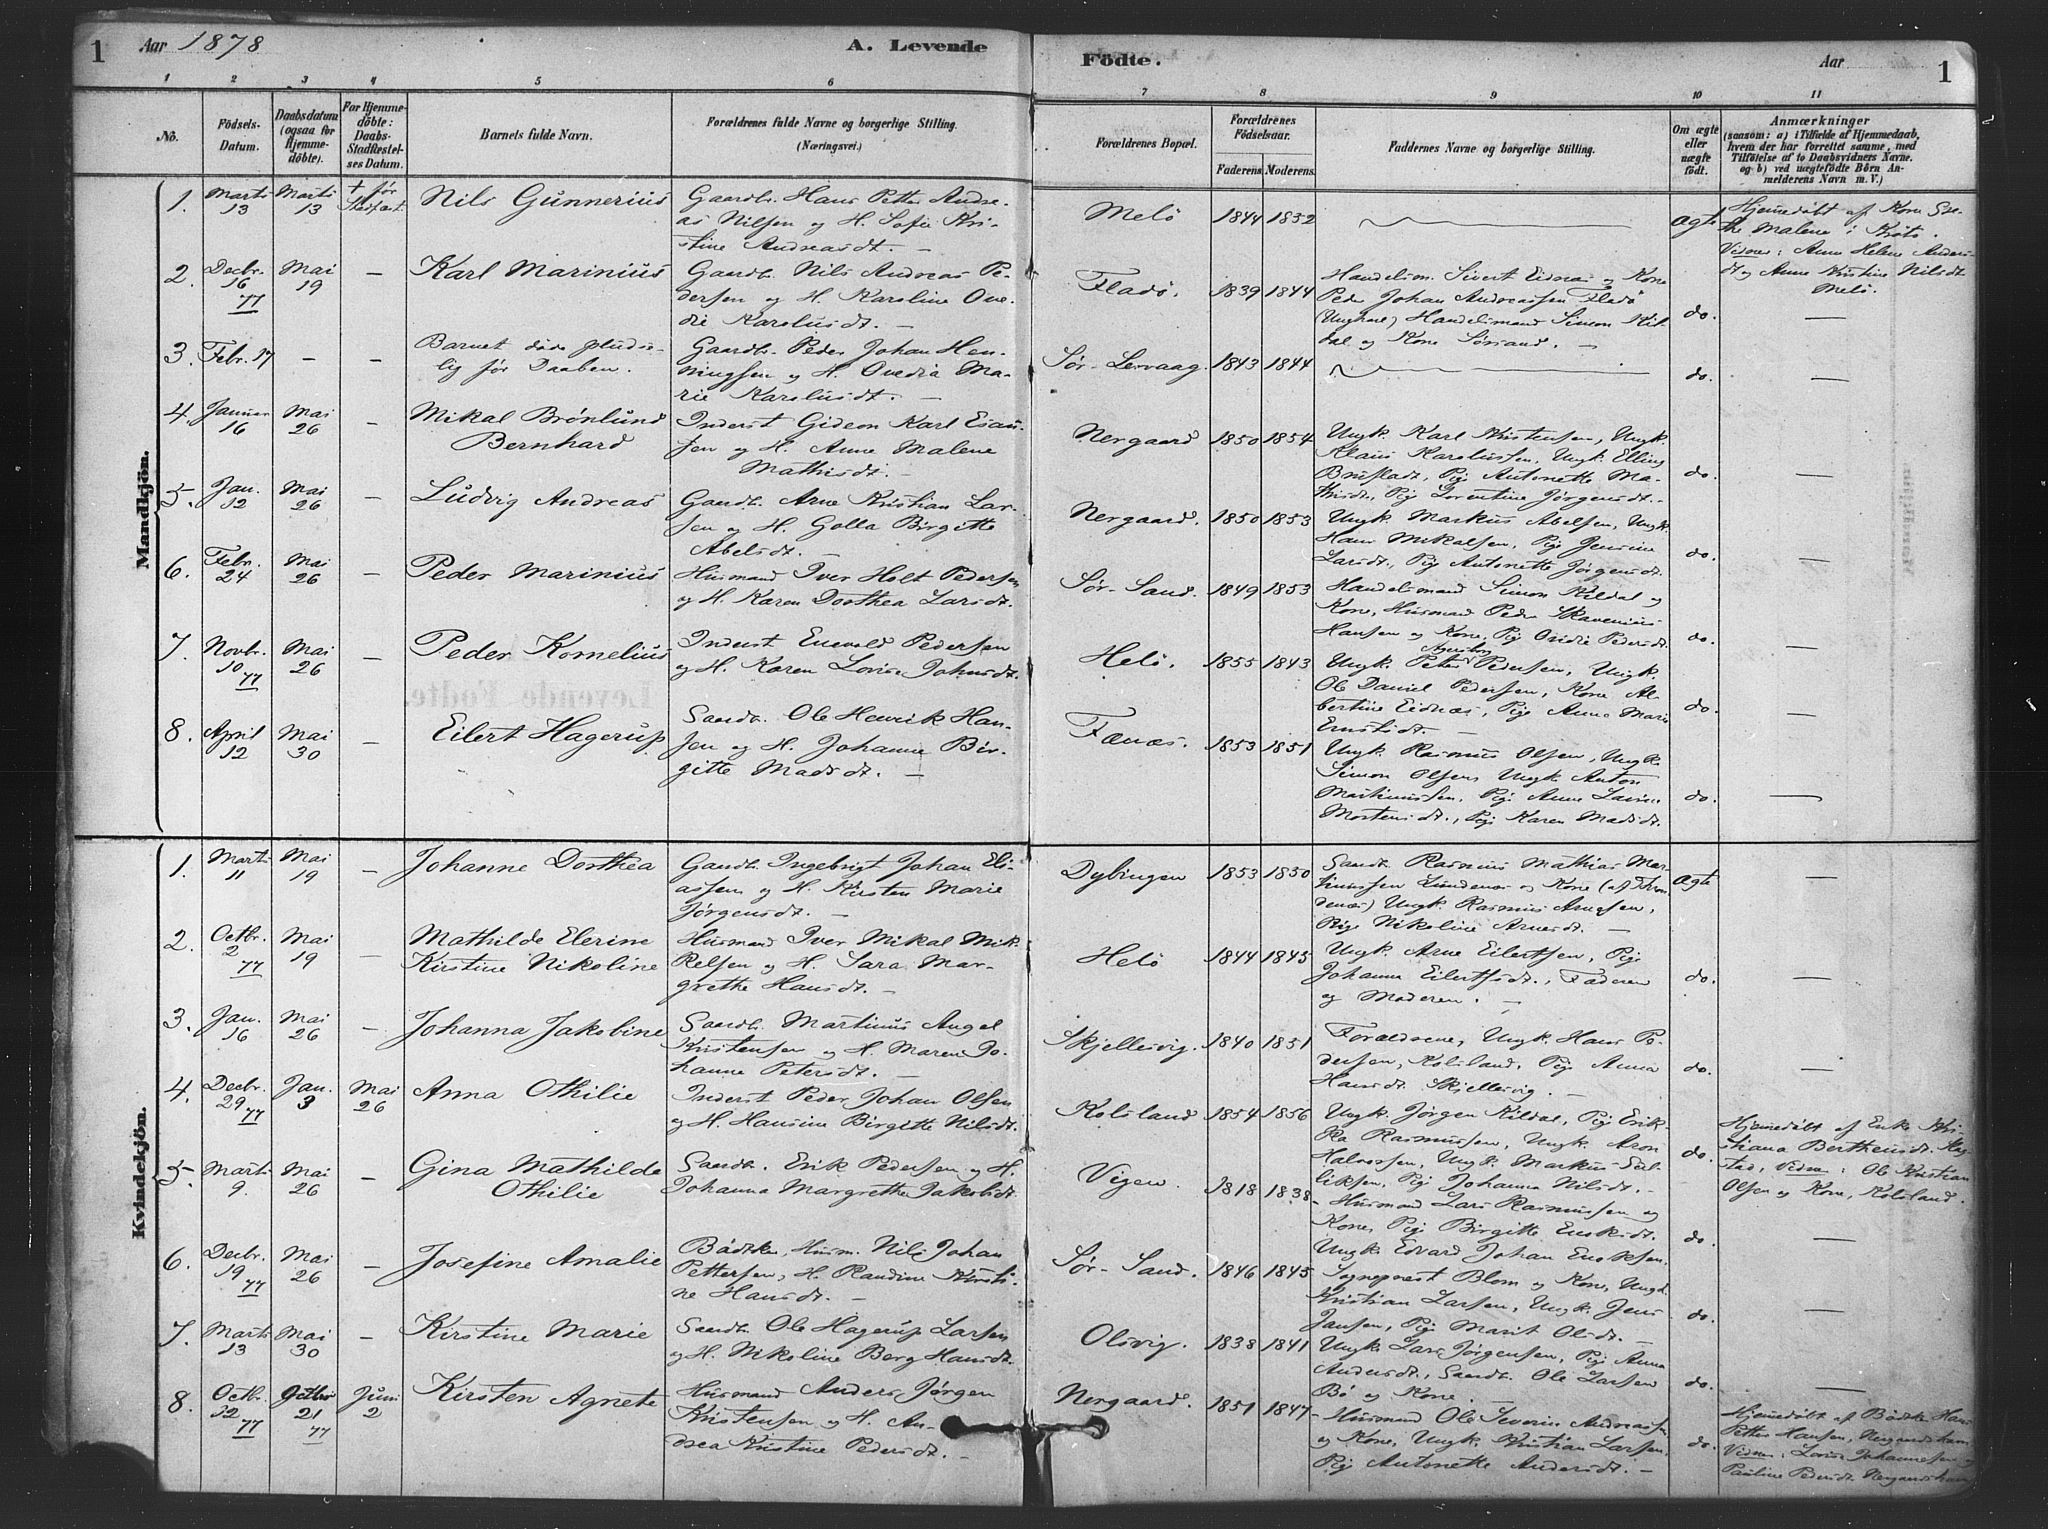 1 Aar 1878 A. Levende Födte. Aar 1
1 2 3 4 5 6 7 8 9 10 11
No. Födsels-Datum. Daabsdatum (ogsaa for Hjemmedöbte). For Hjemmedöbte: Daabs-Stadfæstelses Datum. Barnets fulde Navn. Forældrenes fulde Navne og borgerlige Stilling. (Næringsvei.) Forældrenes Bopæl. Forældrenes Födselsaar. Faderens Moderens Faddernes Navne og borgerlige Stilling. Om ægte eller uægte födt. Anmærkninger (saasom: a) i Tilfælde af Hjemmedaab, hvem der har forrettet samme, med Tilföielse af to Daabsvidners Navne. og b) ved uægtefödte Börn Anmelderens Navn m. V.)
Mandkjön.
1. Marts 13 Marts 13 + før Stadfæst. Nils Gunnerius
Gaardbr. Hans Petter Andre-
as Nilsen og H. Sofie Kri-
stine Andreasdt. —
Melö 1844 1832 — ægte
Hjemmedöbt af Kone
Malene i
Vidner: Anne Helene Anders-
dt og Anne Kristine Nilsdt
Melö.
2. Decbr. 16 77 Mai 19 — Karl Marinius
Gaardb. Nils Andreas Pe-
dersen og H. Karoline Ove-
die Karolusdt. —
Fladö. 1839 1844
Handelsm. Sivert Eidnæs og Kone
Peder Johan Andreassen Fladö
(Ungkarl) Handelsmand Simon Kil-
dal og Kone Sörsand. —
do. —
3. Febr. 17 — — Barnet döde pluds-
lig för Daaben.
Gaardb. Peder Johan Hen-
ningsen og H. Ovedia Ma-
rie Karolusdt. —
Sör-Lervaag. 1843 1844 — do. —
4. Januar 16 Mai 26 — Mikal Brönlund
Bernhard
Inderst Gideon Karl Esau-
sen og H. Anne Malene
Mathisdt. —
Nergaard 1850 1854
Ungk. Karl Kristensen, Ungk.
Klaus Karolussen, Ungk. Elling
Brustad, Pige Antonette Ma-
thisdt, Pige Lorentine Jörgensdt. —
do. —
5. Jan. 12 Mai 26 — Ludvig Andreas
Gaardb. Arne Kristian Lar-
sen og H. Golla Birgitte
Abelsdt. —
Nergaard. 1850 1853
Ungk. Markus Abelsen, Ungk.
Hans Mikalsen, Pige Jensine
Larsdt, Pige Antonette Jörgensdt.
do. —
6. Febr. 24 Mai 26 — Peder Marinius
Husmand Iver Holt Pedersen
og H. Karen Dorthea Larsdt.
Sör-Sand. 1849 1853
Handelsmand Simon Kildal og
Kone, Husmand Peder Skavenius
Hansen og Kone, Pige Ovidie Pedersdt.
do. —
7. Novbr. 10 77 Mai 26 — Peder Kornelius
Inderst Enevold Pedersen
og H. Karen Lovise Johnsdt.
Helö. 1855 1843
Ungk. Peter Pedersen, Ungk.
Ole Daniel Pedersen, Kone Al-
bertine Eidnæs, Pige Anna Marie
Ernstdt.
do. —
8. April 12 Mai 30 — Eilert Hagerup
Gaardb. Ole Henrik Han-
sen og H. Johanne Bir-
gitte Madsdt. —
Fænæs. 1853 1851
Ungk. Rasmus Olsen, Ungk.
Simon Olsen, Ungk. Anton
Martinussen, Pige Anne Lovise
Mortensdt., Pige Karen Madsdt.
do. —
Kvindekjön.
1. Marts 11 Mai 19 — Johanne Dorthea
Gaardb. Ingebrigt Johan Eli-
assen og H. Kirsten Marie
Jörgensdt. —
Dybingen 1853 1850
Gaardb. Rasmus Mathias Mar-
tinussen Lundenæs og Kone (af Thron-
denæs) Ungk. Rasmus Arnesen,
Pige Nikoline Arnesdt. —
Ægte —
2. Octbr. 2 77 Mai 19 — Mathilde Elerine
Kirstine Nikoline
Husmand Iver Mikal Mik-
kelsen og H. Sara Mar-
grethe Hansdt. —
Helö 1844 1843
Ungk. Arne Eilertsen, Pige
Johanna Eilertsdt., Faderen
og Moderen. —
do. —
3. Jan. 16 Mai 26 — Johanna Jakobine
Gaardb. Martinus Angel
Kristensen og H. Maren Jo-
hanne Petersdt. —
Skjellesvig. 1840 1851
Forældrene, Ungk. Hans Pe-
dersen, Kolsland, Pige Anna
Hansdt Skjellesvig. —
do. —
4. Decbr. 29 77 Jan. 3 Mai 26 Anna Othilie
Inderst Peder Johan Olsen
og H. Hansine Birgitte Nilsdt.
Kolsland 1854 1856
Ungk. Jörgen Kildal, Pige Erik-
ka Rasmussen, Ungk. Aron
Halvorsen, Ungk. Markus Eil-
ertsen, Pige Johanna Nilsdt. —
do.
Hjemmedöbt af Enke Kri-
stiana Berthensdt.
Vidner: Ole Kristian
Olsen og Kone, Kolsland.
5. Marts 9. Mai 26 — Gina Mathilde
Othilie
Gaardb. Erik Pedersen og H.
Johanna Margrethe Jakobsdt.
Vigen. 1818 1838
Husmand Lars Rasmussen og
Kone, Pige Birgitte Enoksdt.
Ungk. Edvard Johan Enoksen.
do. —
6. Decbr. 19 77 Mai 26 — Josefine Amalie
Bödtker, Husm. Nils Johan
Pettersen, H. Randine Kirsti-
ne Hansdt. —
Sör-Sand. 1846 1845
Sognepræst Blom og Kone, Ungk.
Kristian Larsen, Ungk. Jens
Jansen, Pige Marit Olsdt. —
do. —
7. Marts 13 Mai 30 — Kirstine Marie
Gaardb. Ole Hagerup Larsen
og H. Nikoline Berg Hansdt.
Olsvig. 1838 1841
Ungk. Lars Jörgensen, Pige Anna
Andersdt, Gaardb. Ole Larsen
Bö og Kone.
do. —
8. Octbr. 77 Octbr. 21 77 Juni 2 Kirsten Agnete
Husmand Anders Jörgen
Kristensen og H. An-
drea Kristine Pedersdt. —
Nergaard. 1851 1847
Husmand Ole Severin Andreassen
og Kone, Ungk. Kristian Larsen,
Pige Antonette Andersdt. —
do.
Hjemmedöbt af Bödtker Hans
Petter Hansen, Nergaardshavn
Vidner: Lovise Johannesen og
Pauline Pedersdt. Nergaardshavn